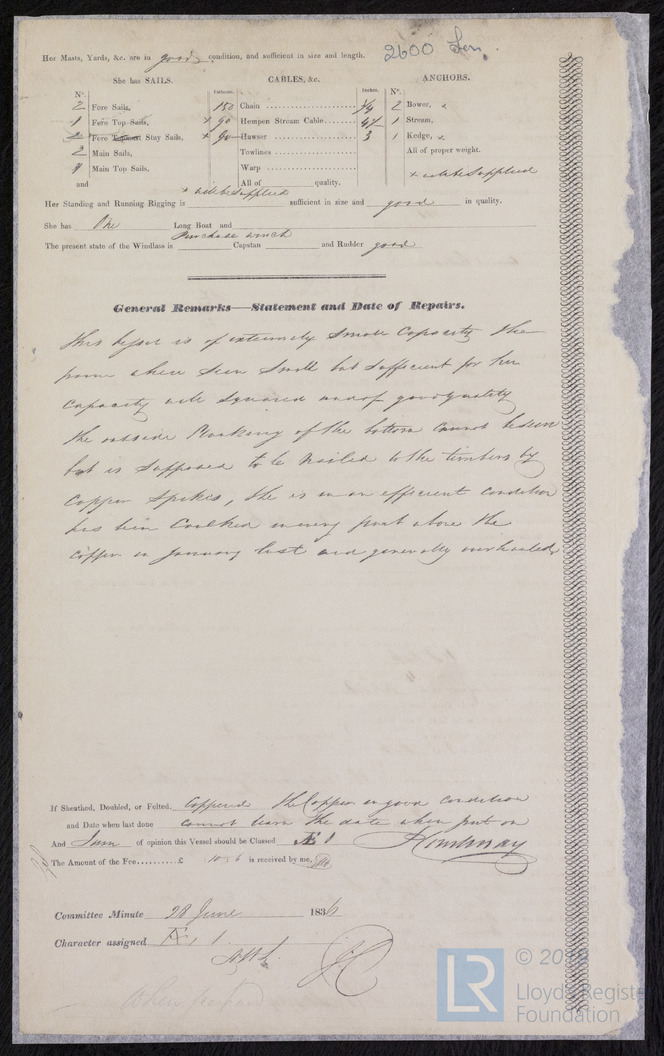 Her Masts, Yards, &c. are in good condition, and sufficient in size and length. 2600
She has SAILS. CABLES, &c. ANCHORS.
N°. Fathoms. Inches. N°.
2 Fore Sails, 150 Chain 3/4 2 Bower, x
1 Fore Top Sails, x 90 Hempen Stream Cable 1 Stream,
2 Fore Topmast Stay Sails, x 90 Hawser 3 1 Kedge, x
2 Main Sails, Towlines All of proper weight.
Main Top Sails, Warp x to be Supplied
and All of quality.
x to be Supplied
Her Standing and Running Rigging is sufficient in size and good in quality.
She has One Long Boat and
Purchase winch
The present state of the Windlass is Capstan and Rudder good
General Remarks—Statement and Date of Repairs.
This is of extremely Small Capacity the
where Seen Small but Sufficient for her
Capacity well Squared and of good quality
the outside Planking of the bottom Cannot be seen
but is Supposed to be Nailed to the timbers by
Copper Spikes, She is in an efficient Condition
has been Caulked in every part above the
Copper in January last and generally overhauled
If Sheathed, Doubled, or Felted, Coppered the Copper in good condition
and Date when last done cannot learn the date when put on
And I am of opinion this Vessel should be Classed Æ 1
The Amount of the Fee £ is received by me,
Committee Minute 28 June 1836
Character assigned Æ 1
© 201
Lloyd's Register
Foundation
LR